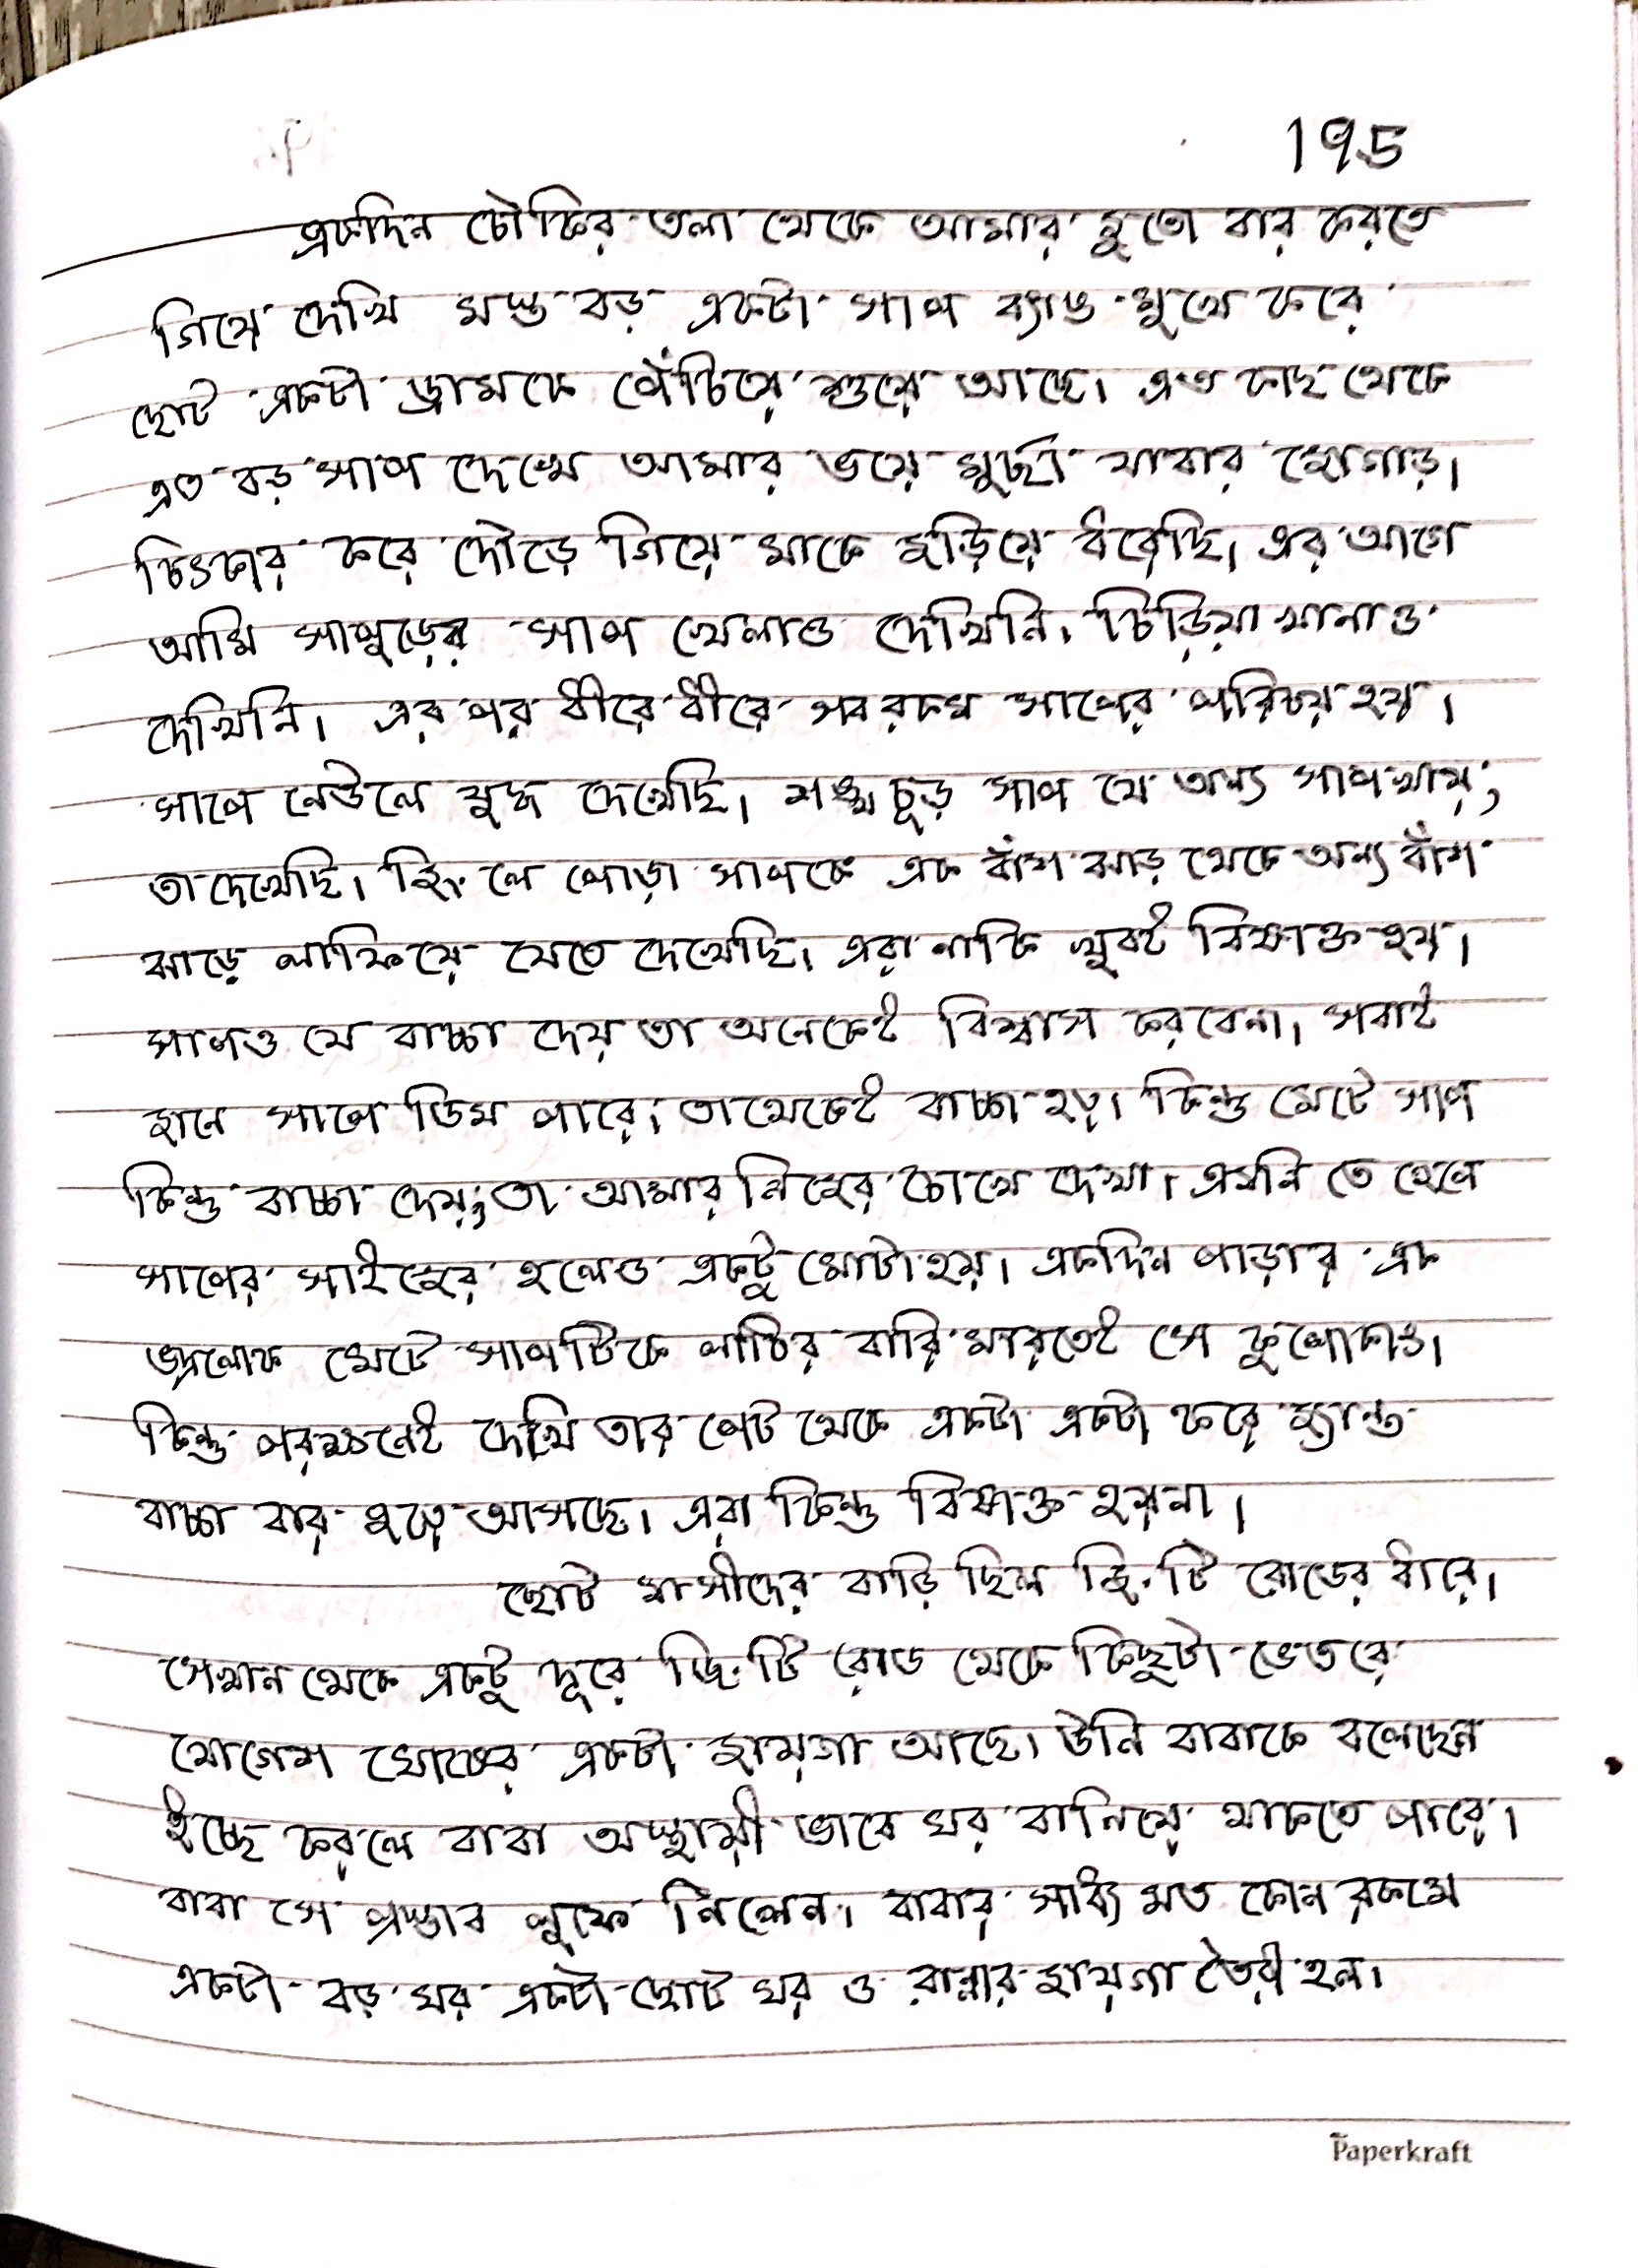 195
একদিন চৌকির তলা থেকে আমার জুতো বার করতে
গিয়ে দেখি মস্ত বড় একটা সাপ ব্যাঙ মুখে করে
ছোট একটা ড্রামকে পেঁচিয়ে শুয়ে আছে। এত কাছ থেকে
এত বড় সাপ দেখে আমার ভয়ে মুর্ছা যাবার জোগাড়।
চিৎকার করে দৌড়ে গিয়ে মাকে জড়িয়ে ধরেছি। এর আগে
আমি সাপুড়ের সাপ খেলাও দেখিনি, চিড়িয়া খানাও
দেখিনি। এর পর ধীরে ধীরে সব রকম সাপের পরিচয় হয়।
সাপে নেউলে যুদ্ধ দেখেছি। শঙ্খ চূড় সাপ যে অন্য সাপ খায়,
তা দেখেছি। লে পোড়া সাপকে এক বাঁশ ঝাড় থেকে অন্য বাঁশ
ঝাড়ে লাফিয়ে যেতে দেখেছি। এরা নাকি খুবই বিষাক্ত হয়।
সাপও যে বাচ্চা দেয় তা অনেকেই বিশ্বাস করবেনা। সবাই
জানে সাপে ডিম পারে, তা থেকেই বাচ্চা হয়। কিন্তু মেটে সাপ
কিন্তু বাচ্চা দেয়; তা আমার নিজের চোখে দেখা। এমনি তে হেলে
সাপের সাইজের হলেও একটু মোটা হয়। একদিন পাড়ার এক
ভদ্রলোক মেটে সাপটিকে লাঠির বারি মারতেই সে কুপোকাত।
কিন্তু পরক্ষনেই দেখি তার পেট থেকে একটা একটা করে জ্যান্ত
বাচ্চা বার হয়ে আসছে। এরা কিন্তু বিষাক্ত হয়না।
ছোট মাসীদের বাড়ি ছিল জি.টি রোডের ধারে।
সেখান থেকে একটু দূরে জি.টি রোড থেকে কিছুটা ভেতরে
যোগেশ ঘোষের একটা জায়গা আছে। উনি বাবাকে বলেছেন
ইচ্ছে করলে বাবা অস্থায়ী ভাবে ঘর বানিয়ে থাকতে পারে।
বাবা সে প্রস্তাব লুফে নিলেন। বাবার সাধ্য মত কোন রকমে
একটা বড় ঘর একটা ছোট ঘর ও রান্নার জায়গা তৈরী হল।
Paperkraft